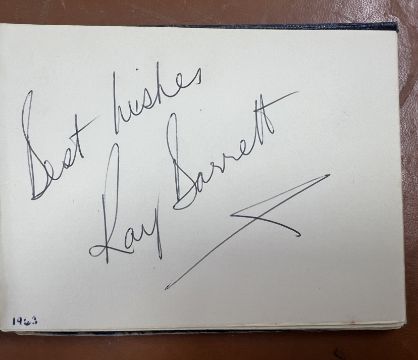 Best wishes
Ray Barrett
1963